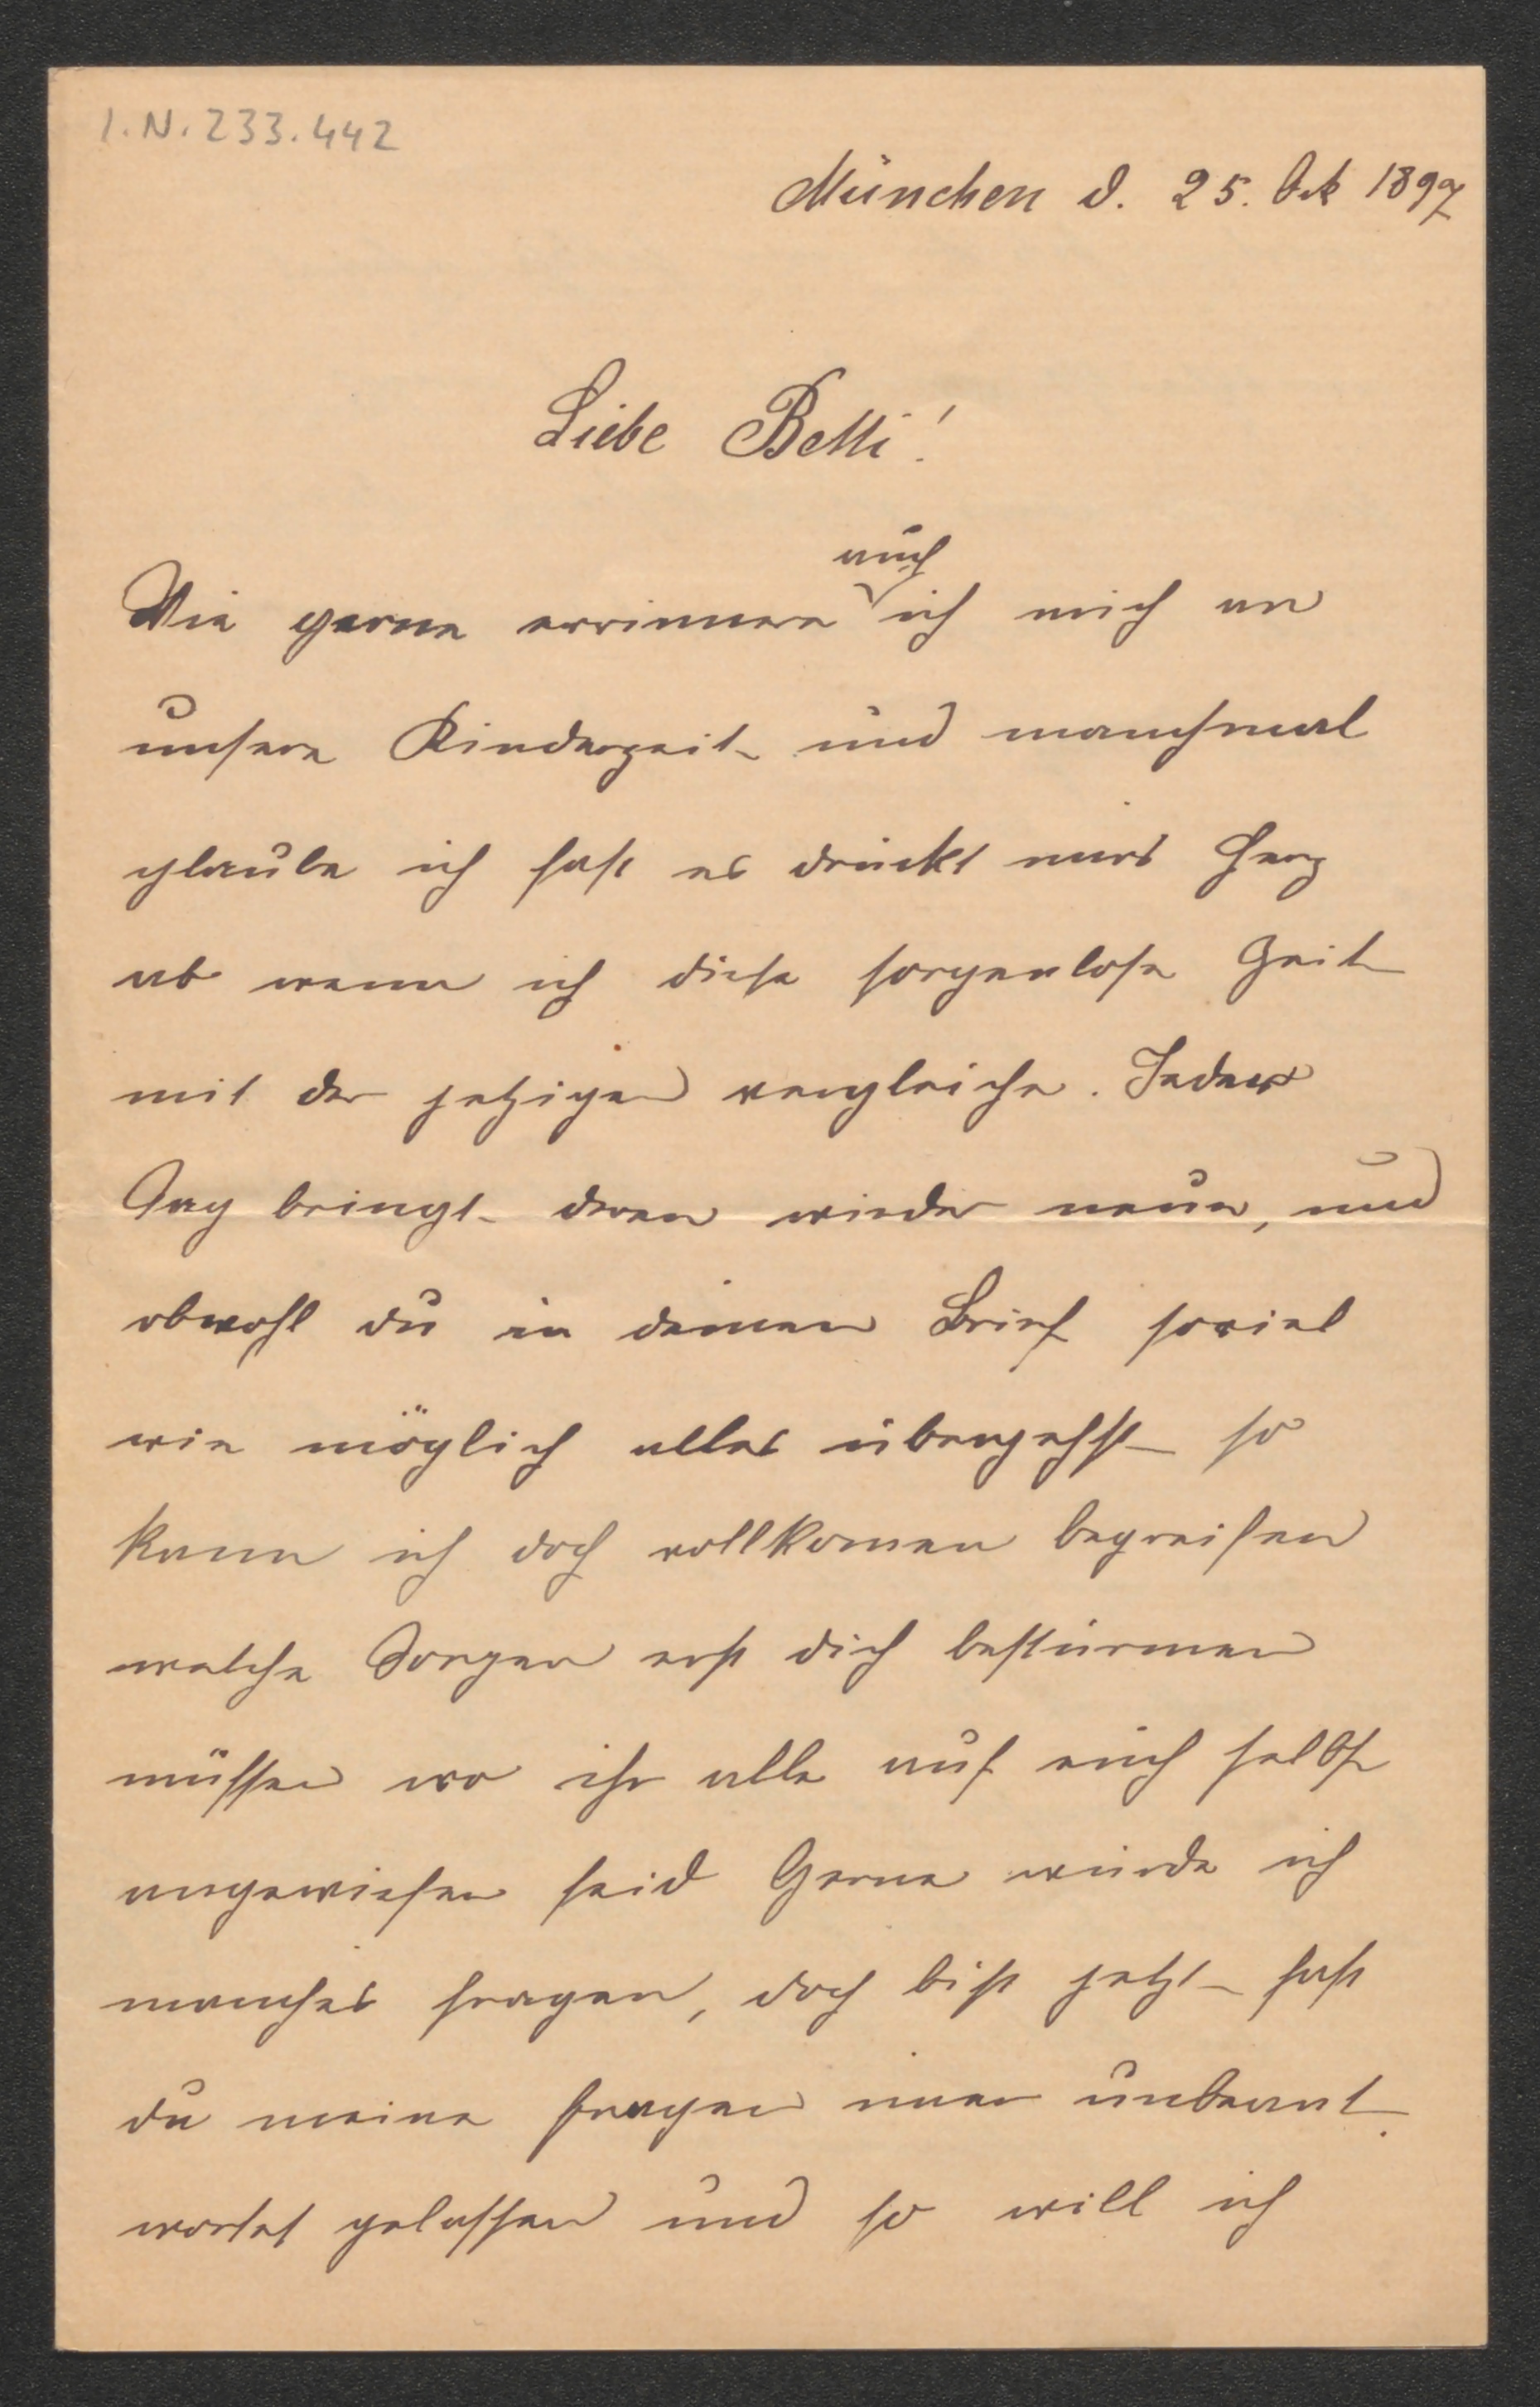 I.N. 233.442
München d. 25. Okt 1897
Liebe Betti!
auch
Wie gerne errinnere ich mich an
unsere Kinderzeit und manchmal
glaube ich fast es drückt mirs Herz
ab wenn ich diese sorgenlose Zeit
mit der jetzigen vergleiche. Jeder
Tag bringt deren wieder neue, und
obwohl du in deinen Brief soviel
wie möglich alles übergehst so
kann ich doch vollkomen begreifen
welche Sorgen erst dich bestürmen
müssen wo ihr alle auf euch selbst
angewiesen seid Gerne würde ich
manches fragen, doch bist jetzt hast
du meine fragen imer unbeant
wortet gelassen und so will ich